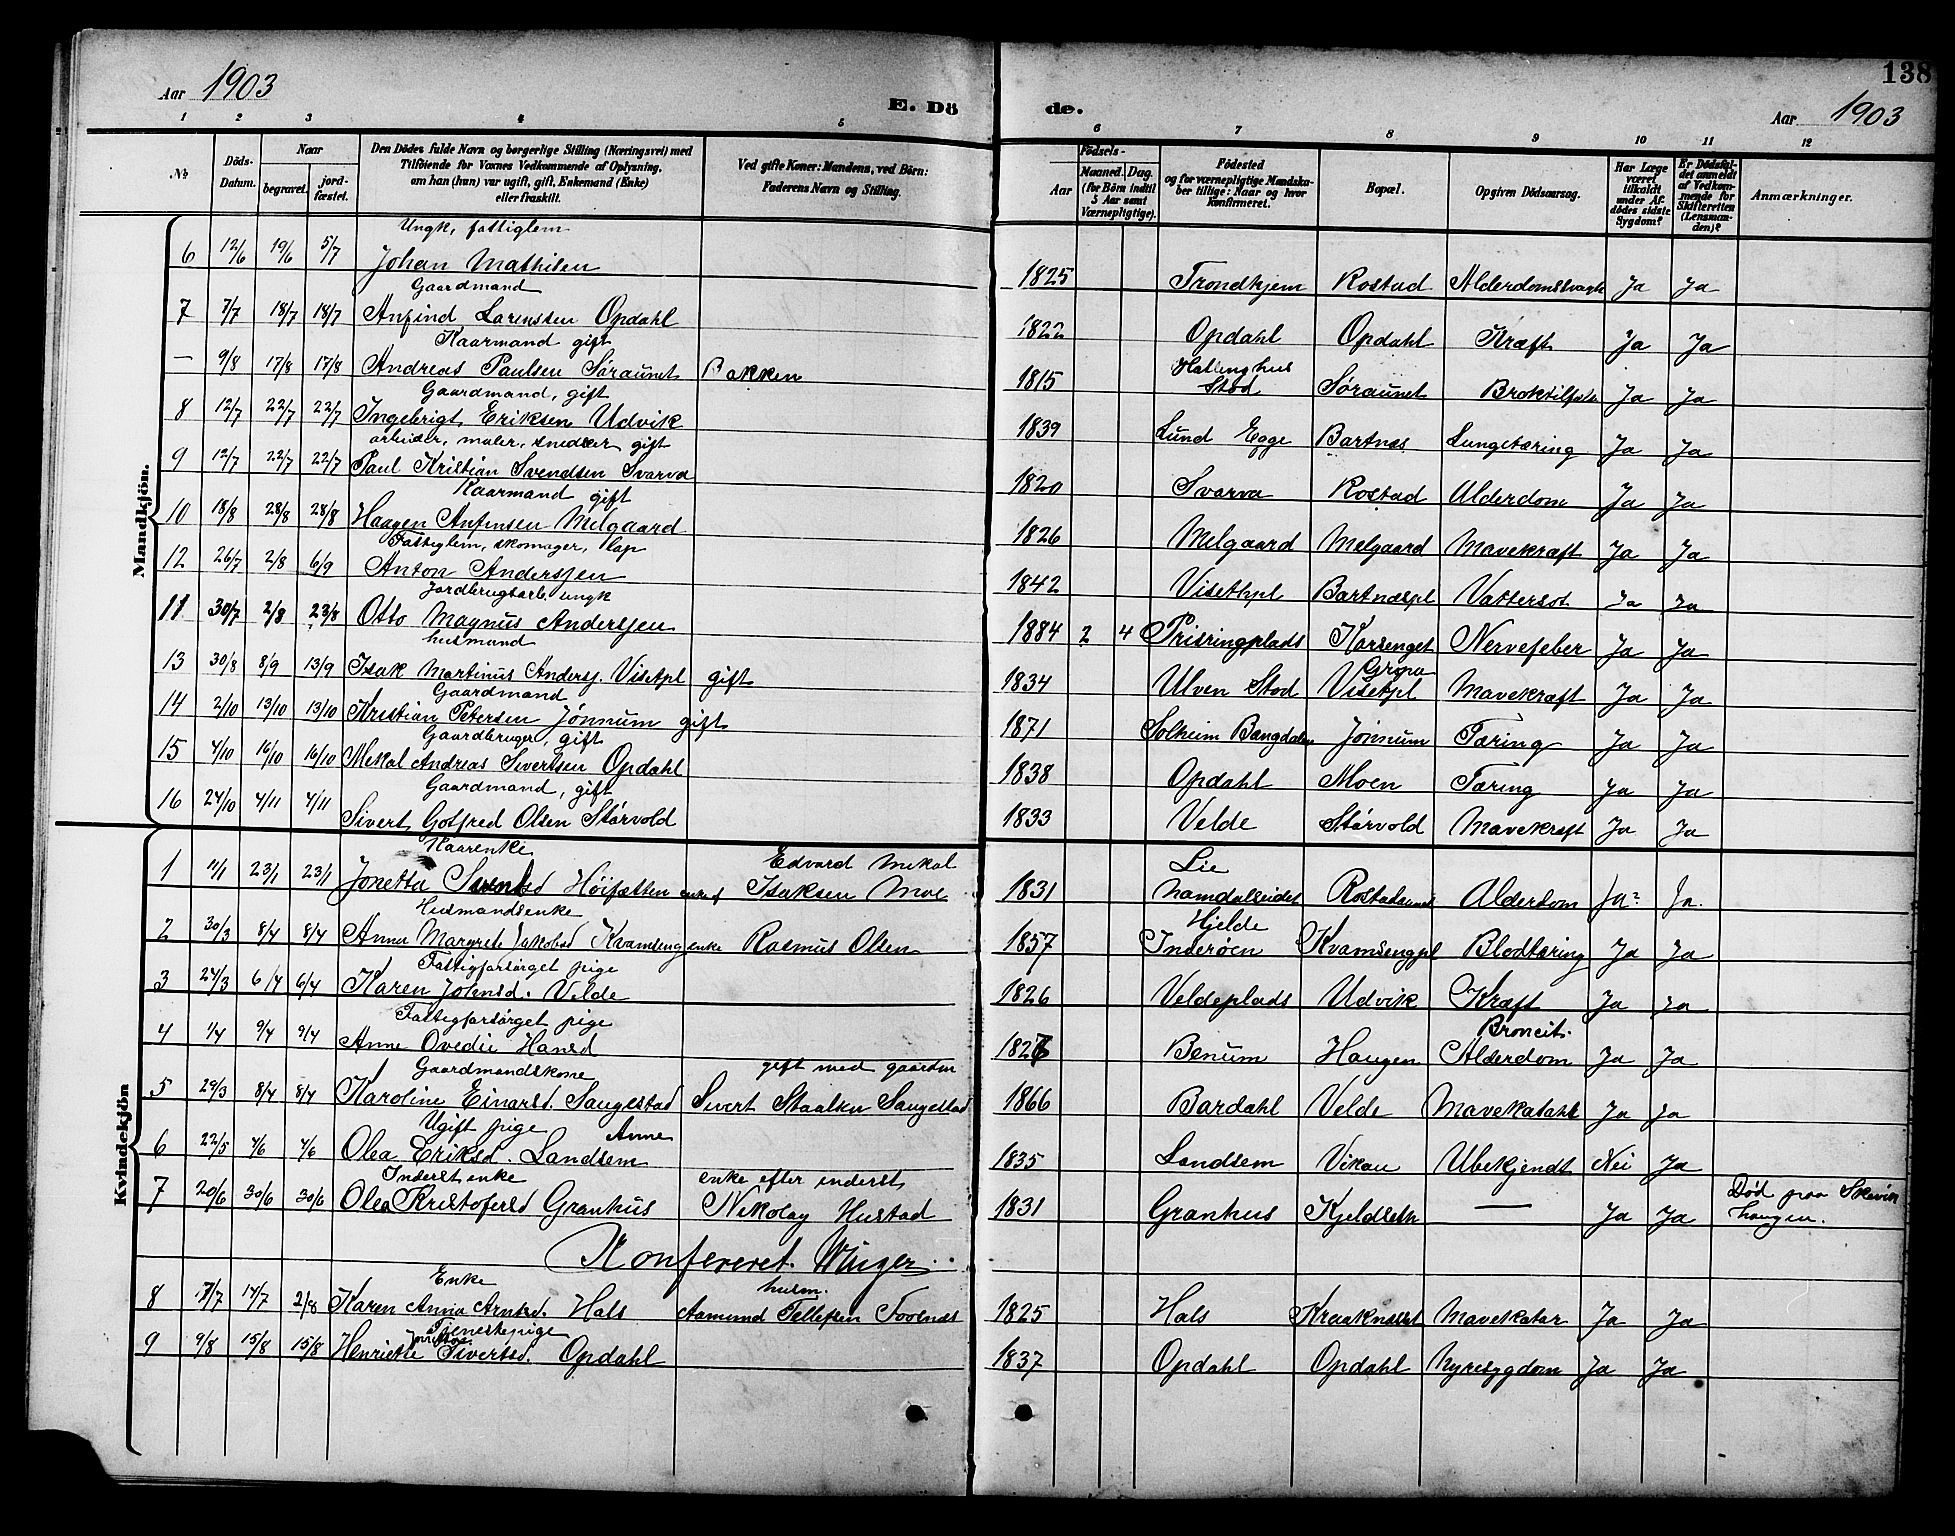 Aar 1903
E. Dö
de.
138
Aar 1903
1 2 3 4 5 6 7 8 9 10 11 12
№
Döds-Datum.
Naar
begravet.
jord-fæstet.
Den Dödes fulde Navn og borgerlige Stilling (Næringsvei) med
Tilföiende for Voxnes Vedkommende af Oplysning,
om han (hun) var ugift, gift, Enkemand (Enke)
eller fraskilt.
Ved gifte Koner: Mandens, ved Börn:
Faderens Navn og Stilling.
Födsels-
Aar
Maaned. Dag.
(for Börn indtil
5 Aar samt
Værnepligtige).
Födested
og for værnepligtige Mandska-
ber tillige: Naar og hvor
Konfirmeret.
Bopæl.
Opgiven Dödsaarsag.
Har Læge
været
tilkaldt
under Af-
dödes sidste
Sygdom?
Er Dödsfal-
det anmeldt
af Vedkom-
mende for
Skifteretten
(Lensman-
den)?
Anmærkninger.
Mandkjön.
Ungk, fattiglem
6 12/6 19/6 5/7 Johan Mathisen 1825 Trondhjem Rostad Alderdomssvagh Ja Ja
Gaardmand
7 7/7 18/7 18/7 Anfind Larensten Opdahl 1822 Opdahl Opdahl Kræft Ja Ja
Kaarmand gift
— 9/8 17/8 17/8 Andreas Paulsen Søraunet Bakken 1815 Hallinghus Stod Søraunet Ja Ja
Gaardmand, gift
8 12/7 22/7 22/7 Ingebrigt Eriksen Udvik 1839 Lund Egge Bartnæs Lungetæring Ja Ja
arbeider, maler, snedker gift
9 12/7 22/7 22/7 Paul Kristian Svendsen Svarva 1820 Svarva Rostad Alderdom Ja Ja
Kaarmand gift
10 18/8 28/8 28/8 Haagen Anfinsen Melgaard 1826 Melgaard Melgaard Mavekræft Ja Ja
Fattiglem, skomager, lap
12 26/7 2/8 6/9 Anton Andersjen 1842 Visethpl Bartnæspl Vattersot Ja Ja
Jordbrugsarb. ungk
11 30/7 2/8 23/8 Otto Magnus Andersjen 1884 2 4 Prisringplads Karsenget Nervefeber Ja Ja
husmand
13 30/8 8/9 13/9 Isak Martinus Andersj. Visetpl gift 1834 Ulven Stod Visetpl Gropa Mavekræft Ja Ja
Gaardmand
14 2/10 13/10 13/10 Kristian Petersen Jønnum gift 1871 Solheim Bangdalen Jønnum Tæring Ja Ja
Gaardbruger, gift
15 4/10 16/10 16/10 Mekal Andreas Sivertsen Opdahl 1838 Opdahl Moen Tæring Ja Ja
Gaardmand, gift
16 24/10 4/11 4/11 Sivert Gotfred Olsen Størvold 1833 Velde Størvold Mavekræft Ja Ja
Kvindekjön
Kaarenke Edvard Mekal
1 11/1 23/1 23/1 Jonetta Svendsd Høifætten enke ef Isaksen Moe 1831 Lie Namdalseidet Rostadaunet Alderdom Ja Ja.
Husmandsenke
2 30/3 8/4 8/4 Anna Margrete Jakobsd Kvamseng enke Rasmus Olsen 1857 Hjelde Inderøen Kvamsengpl Blodtæring Ja Ja
Fattigforsørget pige
3 24/3 6/4 6/4 Karen Johnsd. Velde 1826 Veldeplads Udvik Kræft Ja Ja
Fattigforsørget pige
4 1/4 9/4 9/4 Anne Ovedie Hansd 1826 Benum Haugen Broncit. Alderdom Ja Ja
Gaardmandskone gift med gaardm
5 29/3 8/4 8/4 Karoline Einarsd. Saugestad Sivert Staalsen Saugestad 1866 Bardahl Velde Mavekatahr Ja Ja
Ugift pige Anne
6 22/5 4/6 4/6 Olea Eriksd. Landsem 1835 Landsem Vikau Ubekjendt Nei Ja
Inderst enke enke efter inderst
7 20/6 30/6 30/6 Olea Kristofersd Granhus Nikolay Hustad 1831 Granhus Kjeldseth — Ja Ja Død paa Skevik haugen.
Konfereret. Winger.
Enke husm.
8 7/7 17/7 2/8 Karen Anna Arntsd. Hals Aamund Tellefsen Foosnæs 1825 Hals Kraaknæset Mavekatar Ja Ja
Tjenestepige
9 9/8 15/8 15/8 Henriette Sivertsd. Opdahl 1837 Opdahl Opdahl Nyresygdom Ja Ja